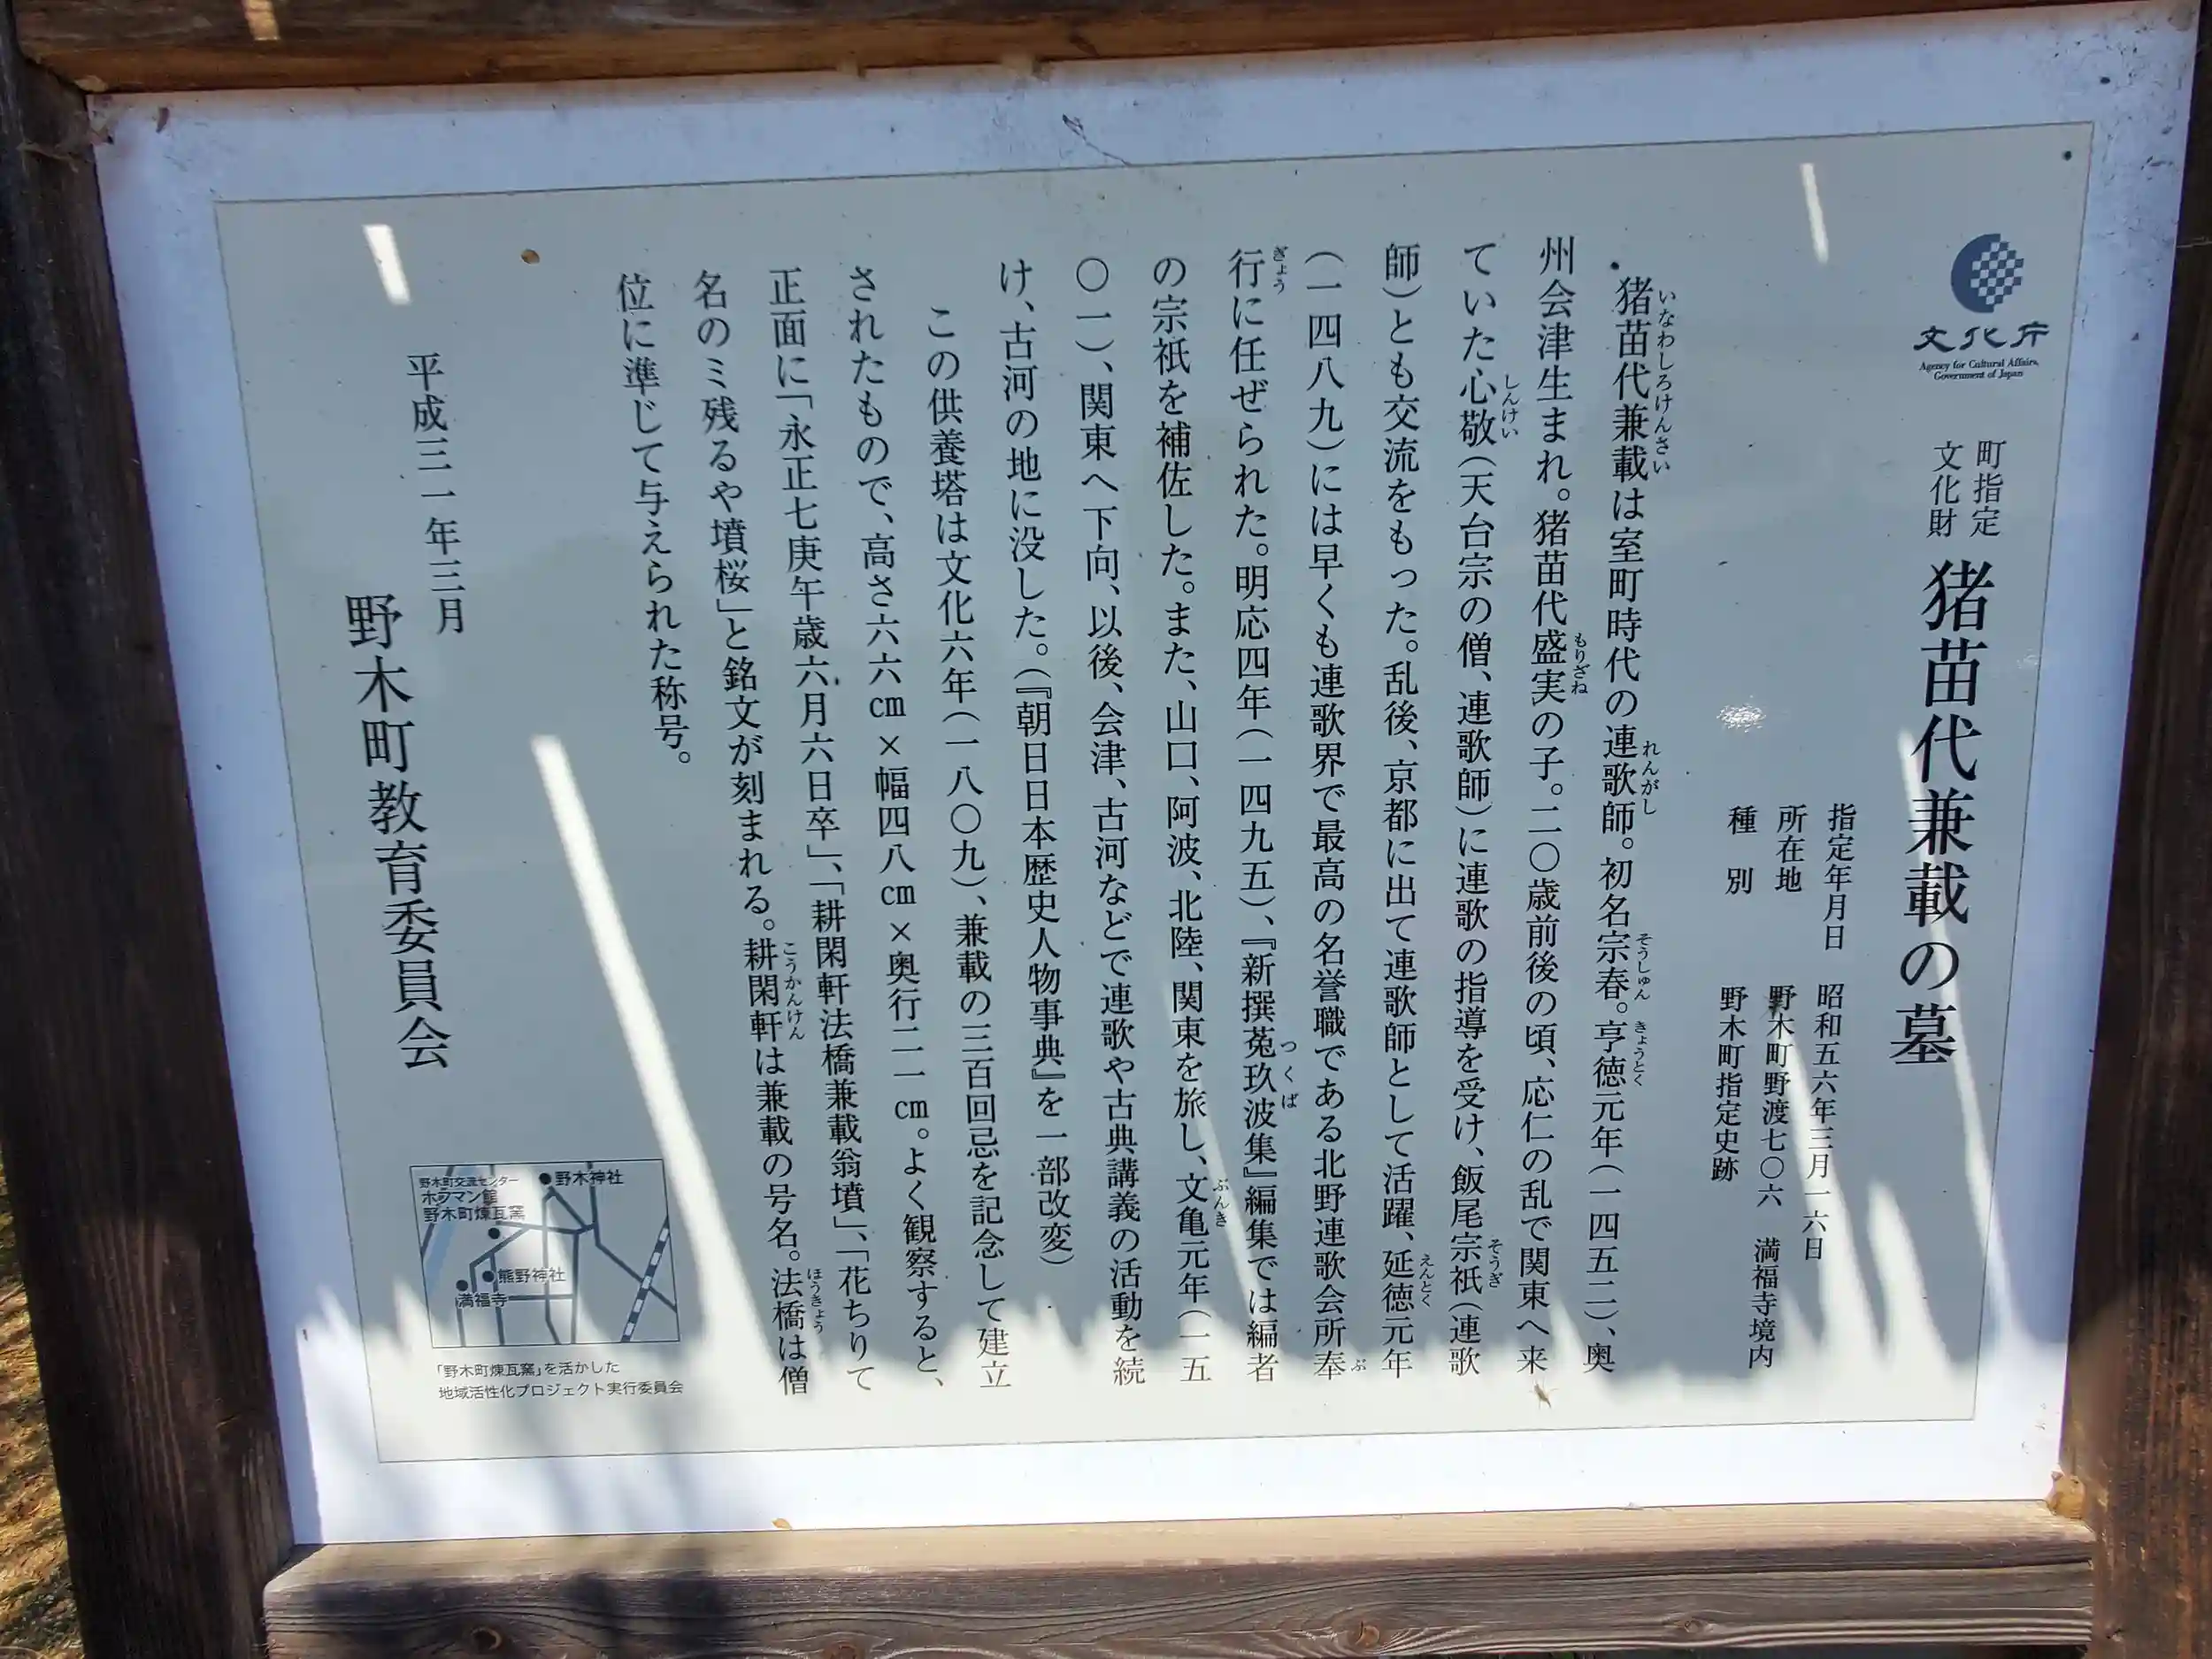 文化庁
Agency for Cultural Affairs,
Government of Japan
町指定
文化財
猪苗代兼載の墓
指定年月日　昭和五六年三月一六日
所在地　野木町野渡七〇六　満福寺境内
種　別　野木町指定史跡
猪苗代兼載は室町時代の連歌師。初名宗春。亨徳元年(一四五二)、奥
いなわしろけんさい
れんがし
そうしゅん
きょうとく
州会津生まれ。猪苗代盛実の子。二〇歳前後の頃、応仁の乱で関東へ来
もりざね
ていた心敬(天台宗の僧、連歌師)に連歌の指導を受け、飯尾宗祇(連歌
しんけい
そうぎ
師)とも交流をもった。乱後、京都に出て連歌師として活躍、延徳元年
えんとく
(一四八九)には早くも連歌界で最高の名誉職である北野連歌会所奉
ぶ
行に任ぜられた。明応四年(一四九五)、『新撰菟玖波集』編集では編者
ぎょう
つくば
の宗祇を補佐した。また、山口、阿波、北陸、関東を旅し、文亀元年(一五
ぶんき
〇一)、関東へ下向、以後、会津、古河などで連歌や古典講義の活動を続
け、古河の地に没した。(『朝日日本歴史人物事典』を一部改変)
この供養塔は文化六年(一八〇九)、兼載の三百回忌を記念して建立
されたもので、高さ六六㎝×幅四八㎝×奥行二一㎝。よく観察すると、
正面に「永正七庚午歳六月六日卒」、「耕閑軒法橋兼載翁墳」、「花ちりて
名のミ残るや墳桜」と銘文が刻まれる。耕閑軒は兼載の号名。法橋は僧
こうかんけん
ほうきょう
位に準じて与えられた称号。
平成三一年三月
野木町教育委員会
野木神社
野木町交流センター
ホフマン館
野木町煉瓦窯
熊野神社
満福寺
「野木町煉瓦窯」を活かした
地域活性化プロジェクト実行委員会